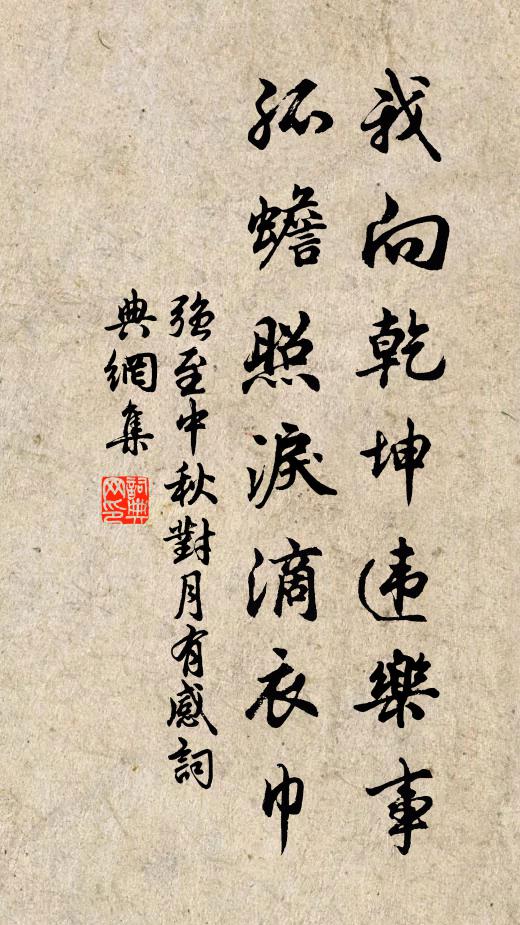 我向乾坤违樂事
孤蟾照淚滴衣巾
強至中秋對月有感詞
典網集
詞典網印